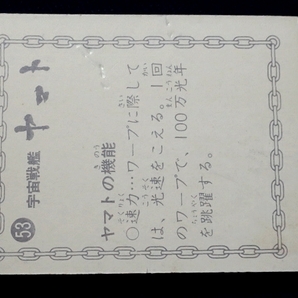 53
宇宙戦艦
ヤマト
ヤマトの機能
○速力…ワープに際して
は、光速をこえる。1回
のワープで、100万光年
を跳躍する。